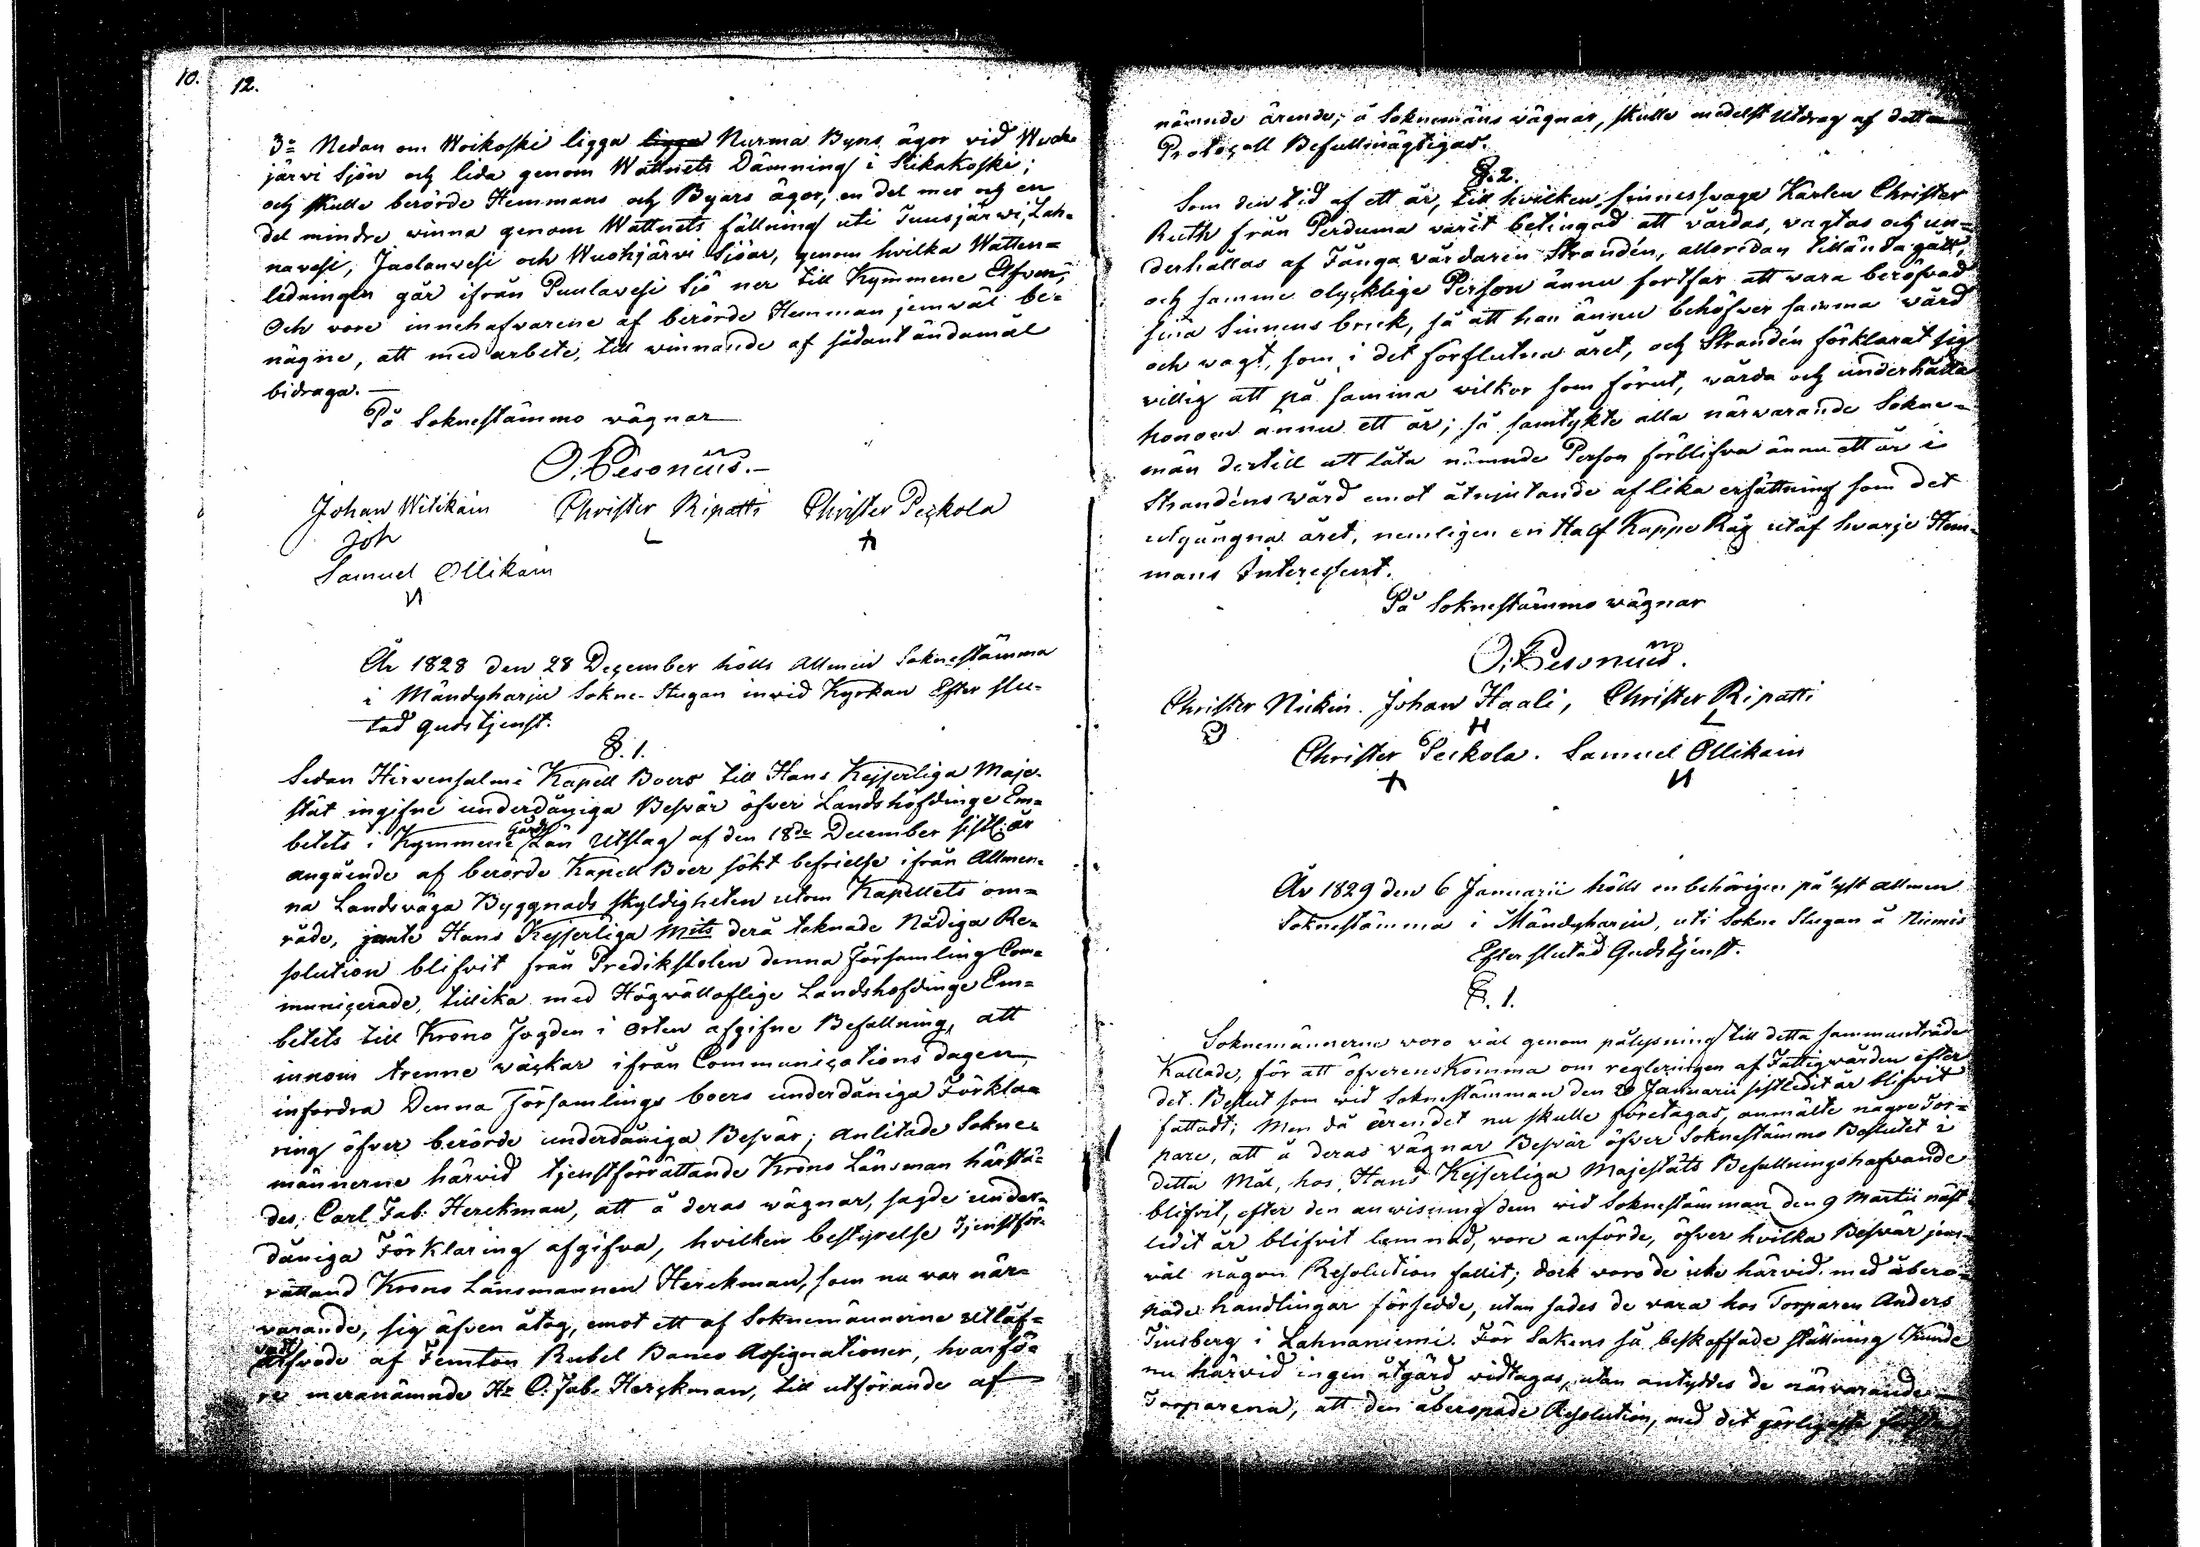 10. 12.
3:o Nedan om Woikoski ligga ligga Nurma Byns ägor vid Wuoh-
järvi Sjön och lida genom Wattnets Dämning i Siikakoski;
och skulle berörde Hemmans och Byars ägor, en del mer och en
del mindre vinna genom Wattnets fällning uti Juusjärwi Lah-
navesi, Juolanvesi och Wuohijärvi Sjöar, genom hvilka Watten-
ledningen går ifrån Puulavesi Sjö ner till Kymmene Elfven;
Och vore innehafvarene af berörde Hemman jemväl be-
nägne, att med arbete, till winnande af sådant ändamål
bidraga. —
På Soknestämmo wägnar
O. Pesonius. —
Johan Witikain Christer Ripatti Christer Peckola
Joh
Samuel Ollikain
År 1828 den 28 December hölls Allmän Soknestämma
i Mändyharju Sokne-Stugan invid Kyrkan Efter slu-
tad gudstjenst.
§. 1.
Sedan Hirvensalmi Kapell Boers till Hans Kejserliga Maje-
stät ingifne underdåniga Besvär öfver Landshöfdinge Em-
betets i Kymmene Gårds Län Utslag af den 18de December sistl. år
angående af berörde Kapell Boer sökt befrielse ifrån Allmen-
na Landsväga Byggnads skyldigheten utom Kapellets om-
råde, jemte Hans Kejserliga Mjts derå teknade Nådiga Re-
solution blifvit från Predikstolen denna Församling Com-
municerade, tillika med Högvälloflige Landshöfdinge Em-
betets till Krono Fogden i Orten afgifne Befallning, att
innom trenne wäckar ifrån Communications dagen
infordra Denna Församlings boers underdåniga Förkla-
ring öfver berörde underdåniga Besvär; anlitade Sokne-
männerne härvid tjenstförrättande Krono Länsman härstä-
des, Carl Jab. Herckman, att å deras wägnar, sagde under-
dåniga Förklaring afgifva, hvilken bestyrelse Tjenstför-
rättand Krono Länsmannen Herckman, som nu var när-
varande, sig äfven åtog, emot ett af Soknemännerne Utlåf-
vadt
Arfvode af Femton Rubel Banco Assignationer, hvarfö-
re meranämnde Hr C. Jab. Herckman, till utförande af
nämnde ärende, å Soknemäns vägnar, skulle medelst Utdrag af detta
Protocoll Befullmägtigas.
§. 2.
Som den tid af ett år, till hvilken, sinnessvage Karlen Christer
Ruth från Perduma varit betingad att vårdas, vagtas och un-
derhållas af Fånga vårdaren Strandén, allaredan tilländagått,
och samme olycklige Person ännu fortfar att vara beröfvad
sina Sinnens bruk, så att han ännu behöfver samma wård
och vagt, som i det förflutna året, och Strandén förklarat sig
villig att på samma wilkor som förut, vårda och underhålla
honom annu ett år; så samtykte alla närvarande Sokne-
män dertill att låta nämnde Person förblifva ännu ett år i
Strandéns wård emot åtnjutande af lika ersättning som det
utgångna året, nemligen en Half Kappe Råg utaf hvarje Hem-
mans Interessent.
På Soknestämmo wägnar
O. Pesonius.
Christer Nickin. Johan Haali, Christer Ripatti
Christer Peckola. Samuel Ollikain
År 1829 den 6 Januarii hölls en behörigen pålyst allmen
Soknestämma i Mändyharju, uti Sokne Stugan å Niemis
Efter slutad Gudstjenst.
§. 1.
Soknemännerne woro wäl genom pålysning till detta sammanträde
Kallade, för att öfverenskomma om regleringen af Fattigvården efter
det Beslut som wid Soknestämman den 20 Januarii sistledit år blifvit
fattadt; Men då ärendet nu skulle företagas, anmälte någre Tor-
pare, att å deras wägnar Besvär öfver Soknestämmo Beslutet i
detta Mål, hos Hans Kejserliga Majestäts Befallningshafvande
blifvit, efter den anvisning dem vid Soknestämman den 9 Martii näst-
ledit år blifvit lemnad, vore anförde, öfver hvilka Besvär jem-
väl någon Resolution fallit; dock woro de icke härvid med åbero-
pade handlingar försedde, utan sades de vara hos Torparen Anders
Tinsberg i Lahnaniemi. För Sakens så beskaffade ställning Kunde
nu härvid ingen åtgärd vidtagas, utan antyddes de närvarande
Torparena, att den åberopade Resolution, med det görligaste